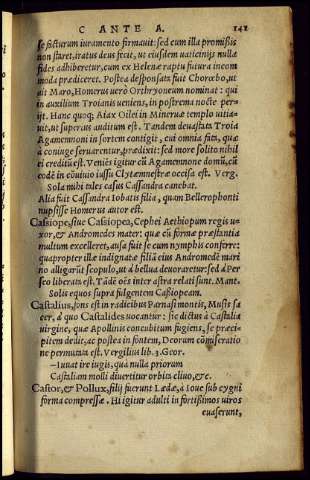 CANTE A. 141
se facturum iuramento firmauit: sed cum illa promissis
non staret, iratus deus fecit, ut eiusdem uaticinijs nulla
fides adhiberetur, cum ex Helenæ raptu futura incom
moda prædiceret. Postea desponsata fuit Chorœbo, ut
ait Maro, Homerus uerò Orthryoneum nominat: qui
in auxilium Troianis ueniens, in postrema nocte per-
ijt. Hanc quoq; Aiax Oilei in Mineruæ templo uitia-
uit, ut superius auditum est. Tandem deuastata Troia
Agamemnoni in sortem contigit, cui omnia fata, quæ
à coniuge seruarentur, prædixit: sed more solito nihil
ei creditū est. Veniēs igitur cū Agamemnone domū, cū
eodē in conuiuio iussu Clytæmnestræ occisa est. Verg.
Sola mihi tales casus Cassandra canebat.
Alia fuit Cassandra Iobatis filia, quam Bellerophonti
nupsisse Homerus autor est.
Cassiope, siue Cassiopea, Cephei Aethiopum regis u-
xor, & Andromedes mater: quæ cū formæ præstantia
multum excelleret, ausa fuit se cum nymphis conferre:
quapropter illæ indignatæ filiā eius Andromedē mari
no alligarūt scopulo, ut à bellua deuoraretur: sed à Per
seo liberata est. Tādē oēs inter astra relati sunt. Mant.
Solis equos supra fulgentem Cassiopeam.
Castalius, fons est in radicibus Parnasi montis, Musis sa
cer, à quo Castalides uocantur: sic dictus à Castalia
uirgine, quæ Apollinis concubitum fugiens, se præci-
pitem dedit, ac postea in fontem, Deorum comiseratio
ne permutata est. Vergilius lib. 3. Geor.
—Iuuat ire iugis, quà nulla priorum
Castaliam molli diuertitur orbita cliuo, &c.
Castor, & Pollux, filij fuerunt Lædæ, à Ioue sub cygni
forma compressæ. Hi igitur adulti in fortissimos uiros
euaserunt,